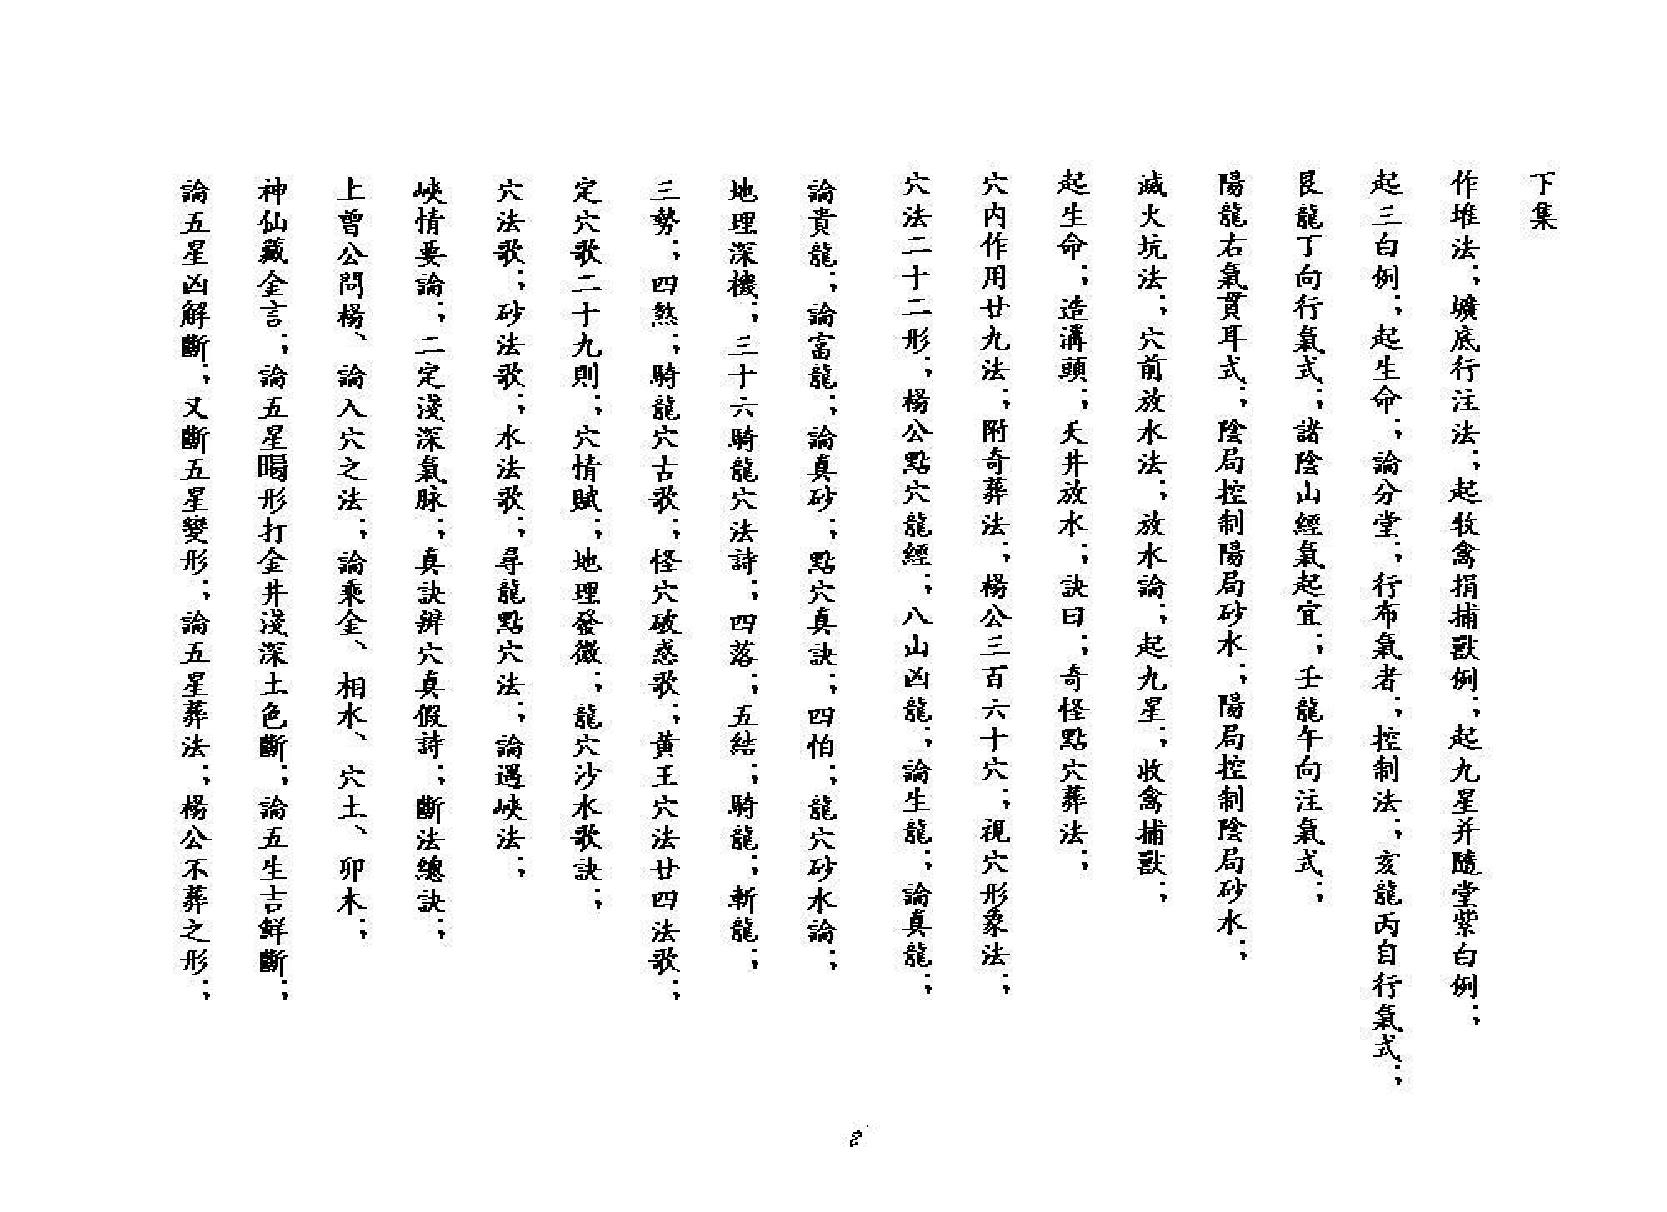 下集
作堆法；壙底行注法；起牧禽捐捕獸例；起九星并隨堂紫白例；
起三白例；起生命；論分堂；行布氣者；控制法；亥龍丙自行氣式；
艮龍丁向行氣式；諸陰山經氣起宜；壬龍午向注氣式；
陽龍右氣貫耳式；陰局控制陽局砂水；陽局控制陰局砂水；
滅火坑法；穴前放水法；放水論；起九星；收禽捕獸；
起生命；造溝頭；天井放水；訣曰；奇怪點穴葬法；
穴內作用廿九法；附奇葬法；楊公三百六十穴；視穴形象法；
穴法二十二形；楊公點穴龍經；八山凶龍；論生龍；論真龍；
論貴龍；論富龍；論真砂；點穴真訣；四怕；龍穴砂水論；
地理深機；三十六騎龍穴法詩；四落；五結；騎龍；斬龍；
三勢；四煞；騎龍穴古歌；怪穴破惑歌；黃王穴法廿四法歌；
定穴歌二十九則；穴情賦；地理發微；龍穴沙水歌訣；
穴法歌；砂法歌；水法歌；尋龍點穴法；論遇峽法；
峽情要論；二定淺深氣脉；真訣辨穴真假詩；斷法總訣；
上曾公問楊、論入穴之法；論乘金、相水、穴土、卯木；
神仙藏金言；論五星喝形打金井淺深土色斷；論五生吉鮮斷；
論五星凶解斷；又斷五星變形；論五星葬法；楊公不葬之形；
2